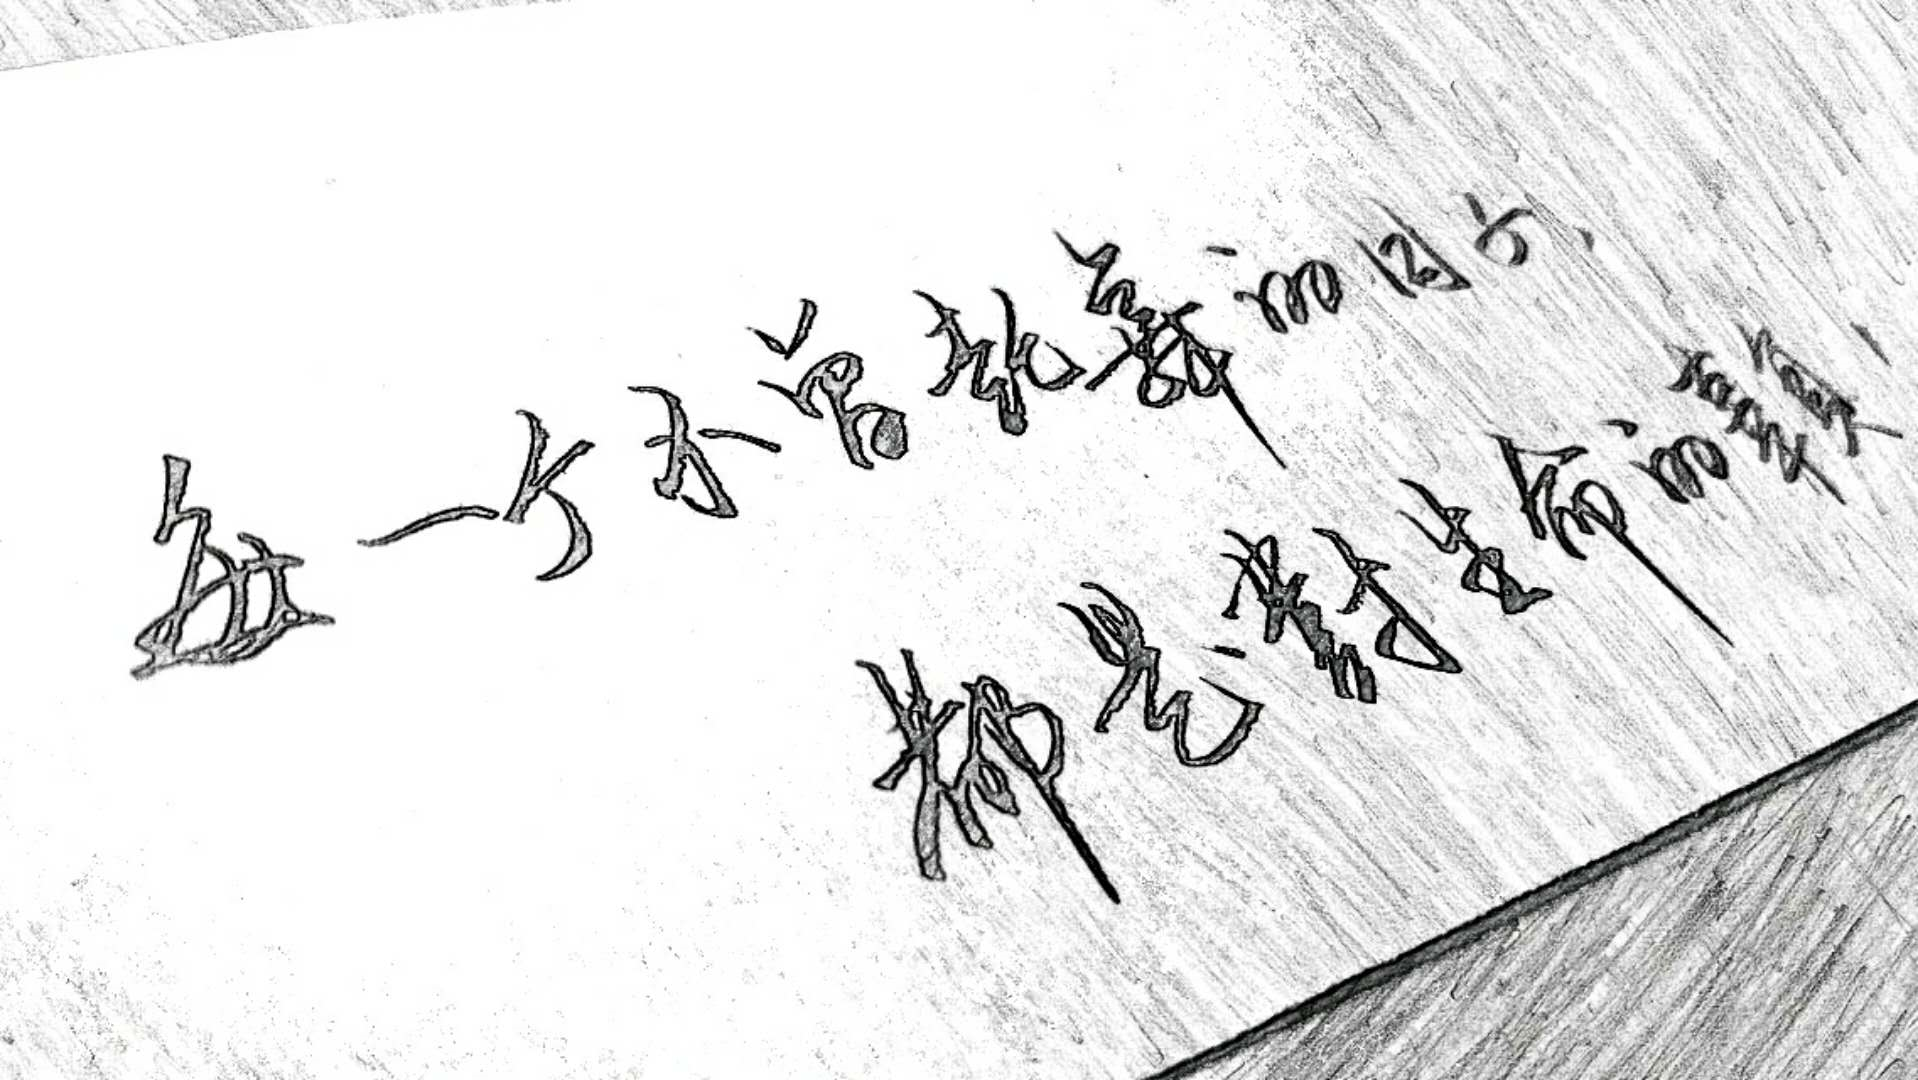 每一个不曾起舞的日子，
都是對生命的辜負